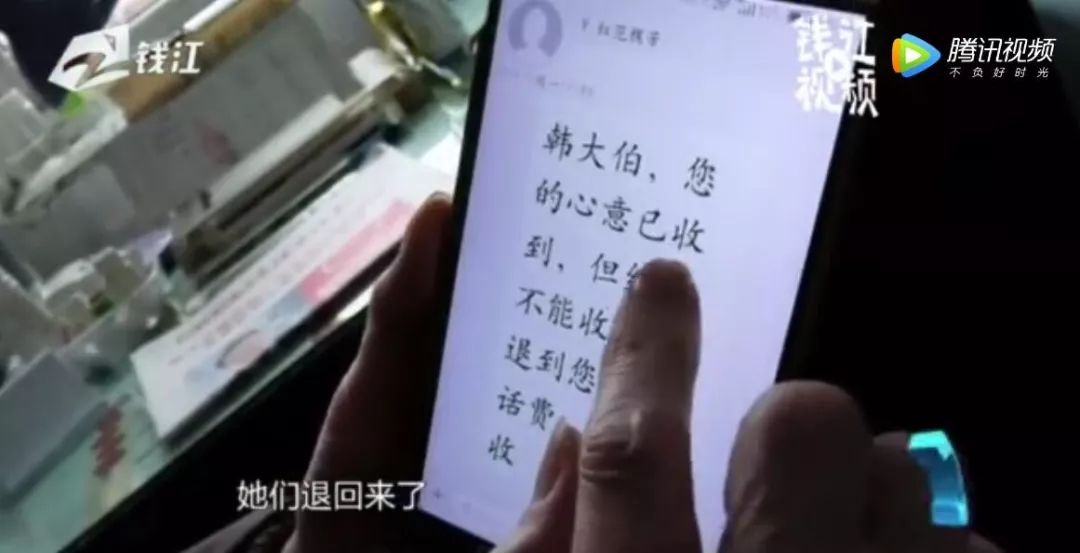 钱江
钱江
视频
腾讯视频
不负好时光
韩大伯，您
的心意已收
到，但
不能收
退到您
话费
收
她们退回来了